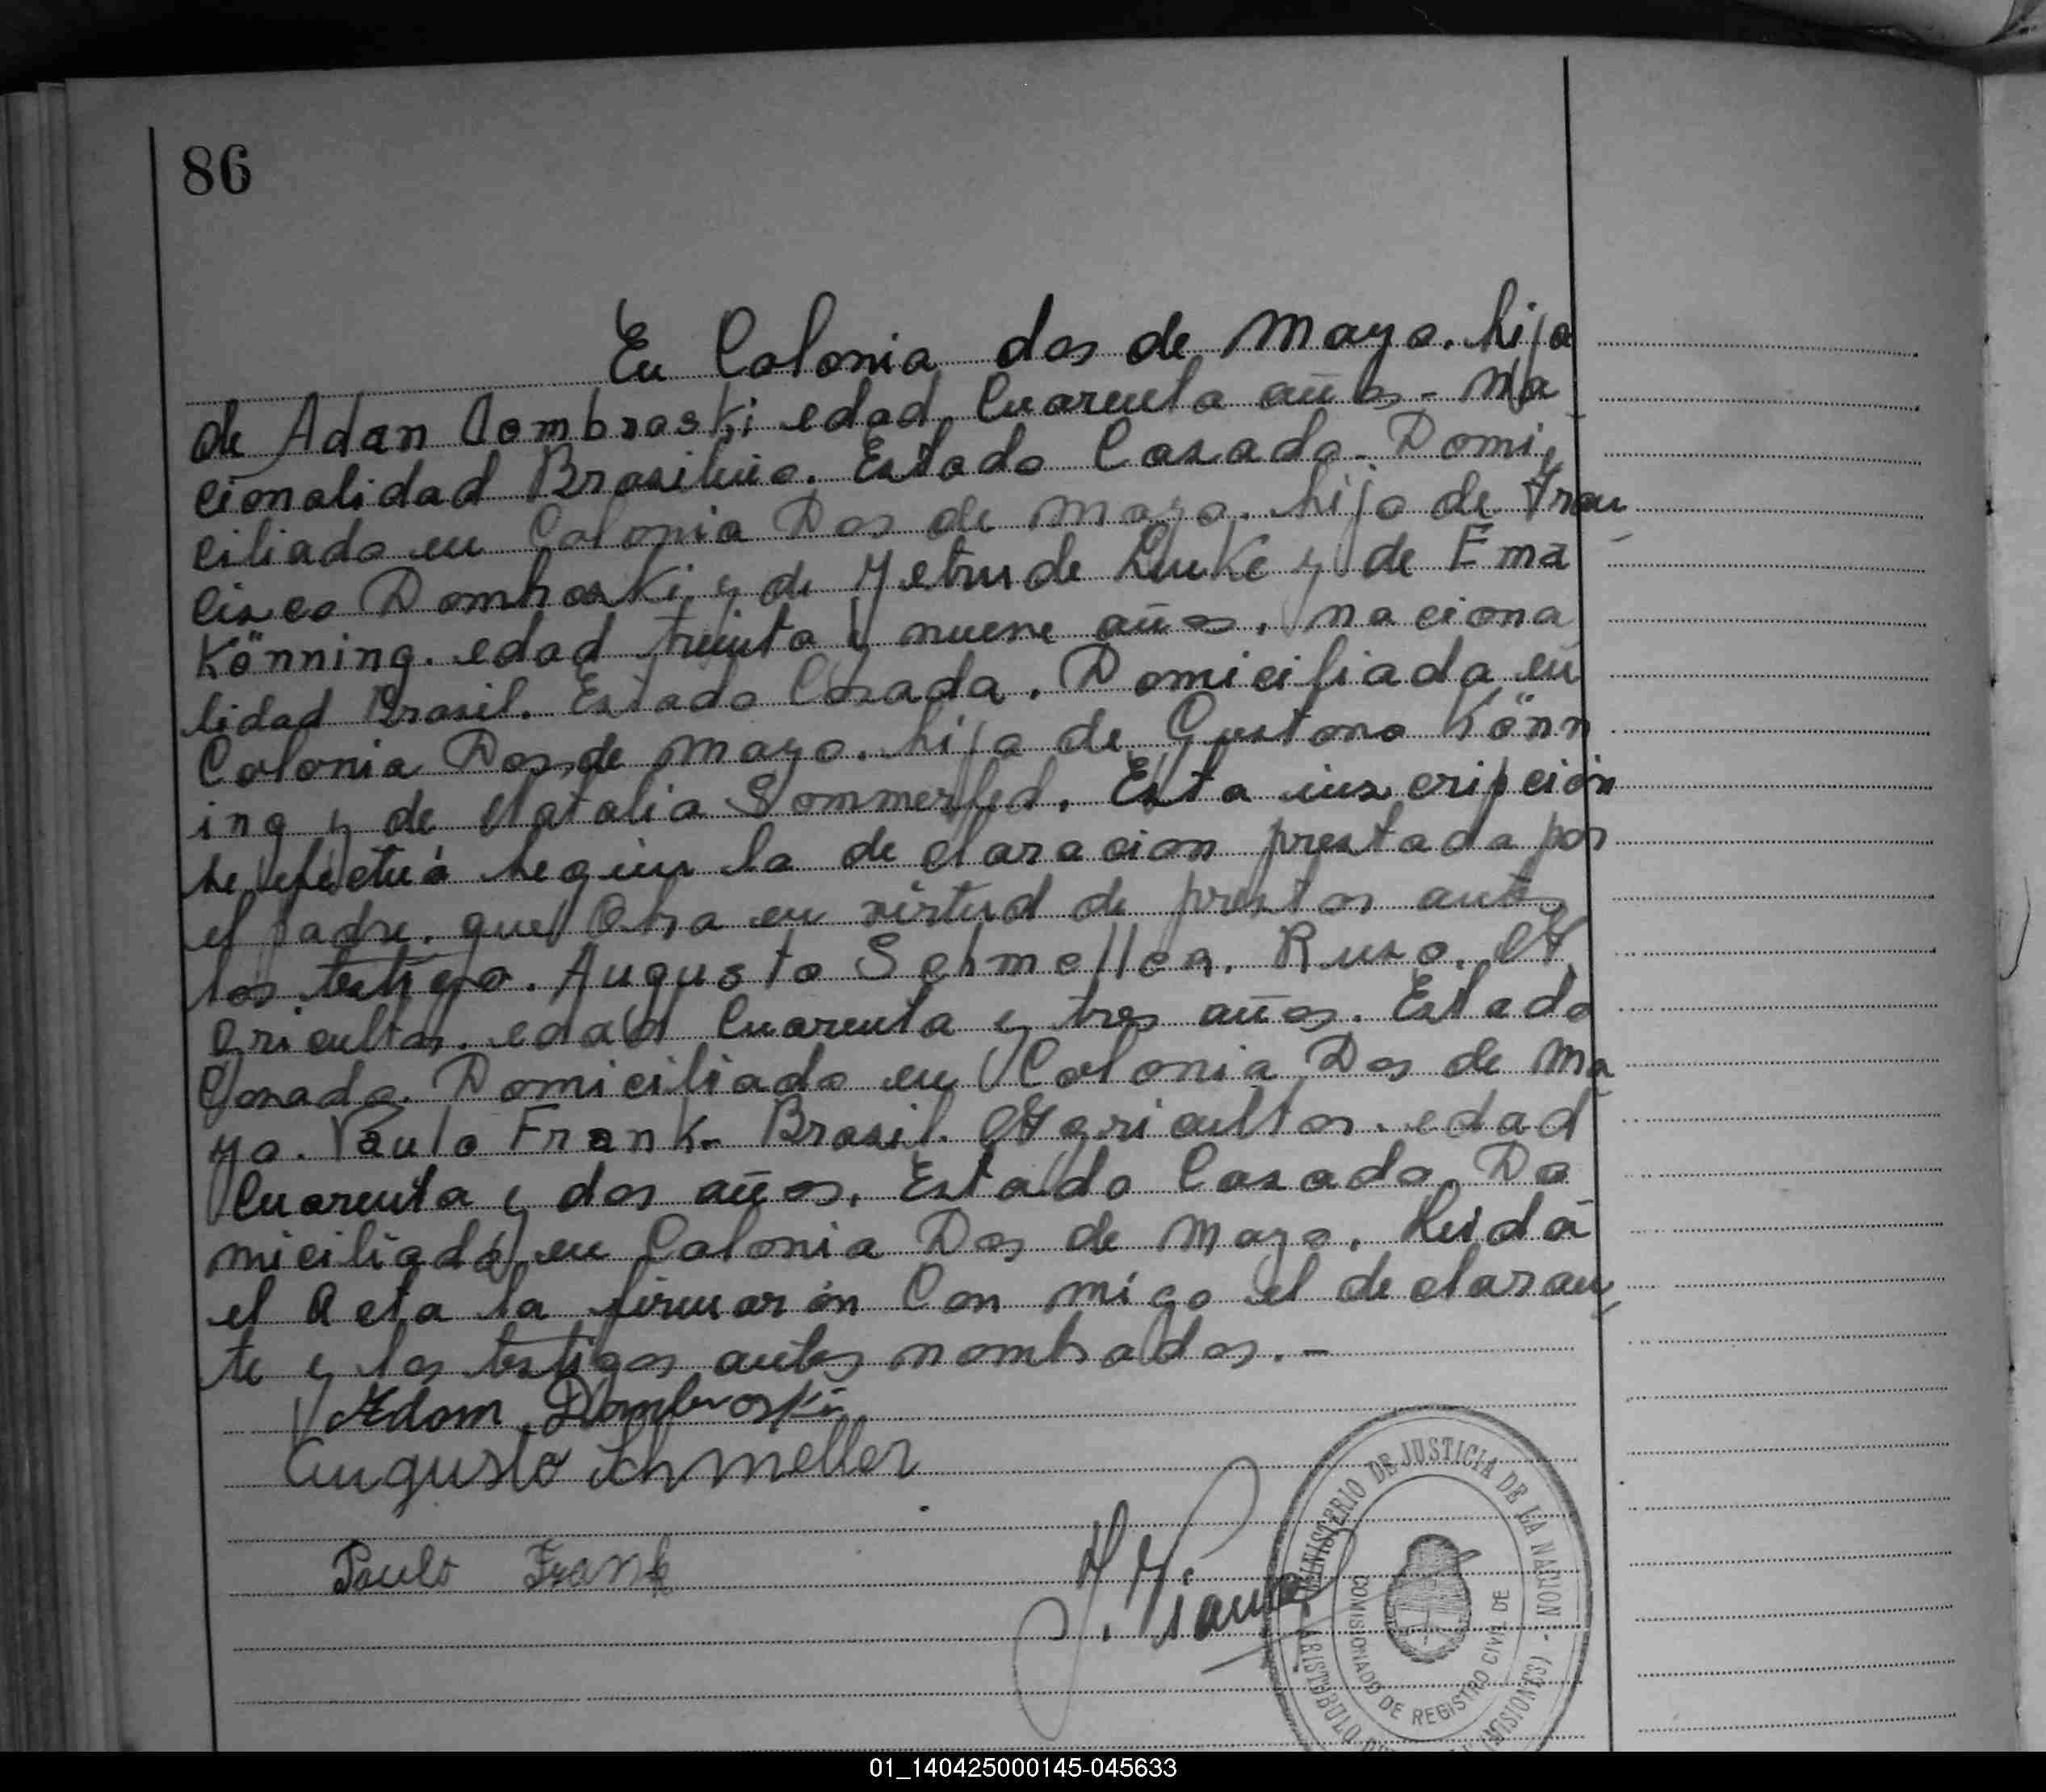 86
En Colonia dos de Mayo. hija
de Adan Dombroski edad Cuarenta años - Na
cionalidad Brasileño. Estado Casado. Domi
ciliado en Colonia Dos de Mayo. hijo de Fran
cisco Domboski y de Yetrude y de Ema
Könning. edad treinta y nueve años. naciona
lidad Brasil. Estado Casada. Domiciliada en
Colonia Dos de Mayo. hija de Gustavo Könn
ing y de Natalia Sommerfed. Esta inscripción
se efectuó según la declaracion prestada por
el Padre. que Obra en virtud de ante
los testigo. Augusto Schmeller. Ruso. A
gricultor. edad Cuarenta y tres años. Estado
Casado. Domiciliado en Colonia Dos de Ma
yo. Paulo Frank. Brasil. Agricultor. edad
Cuarenta y dos años. Estado Casado. Do
miciliado en Colonia Dos de Mayo. Leida
el Acta la firmarón Con migo el declaran
te y los testigos antes nombados. -
Adom Dombroski
Augusto Schmeller
Paulo Frank
MINISTERIO DE JUSTICIA DE LA NACION -
COMISIONADO DE REGISTRO CIVIL DE
ARISTOBULO (MISIONES)
01_140425000145-045633